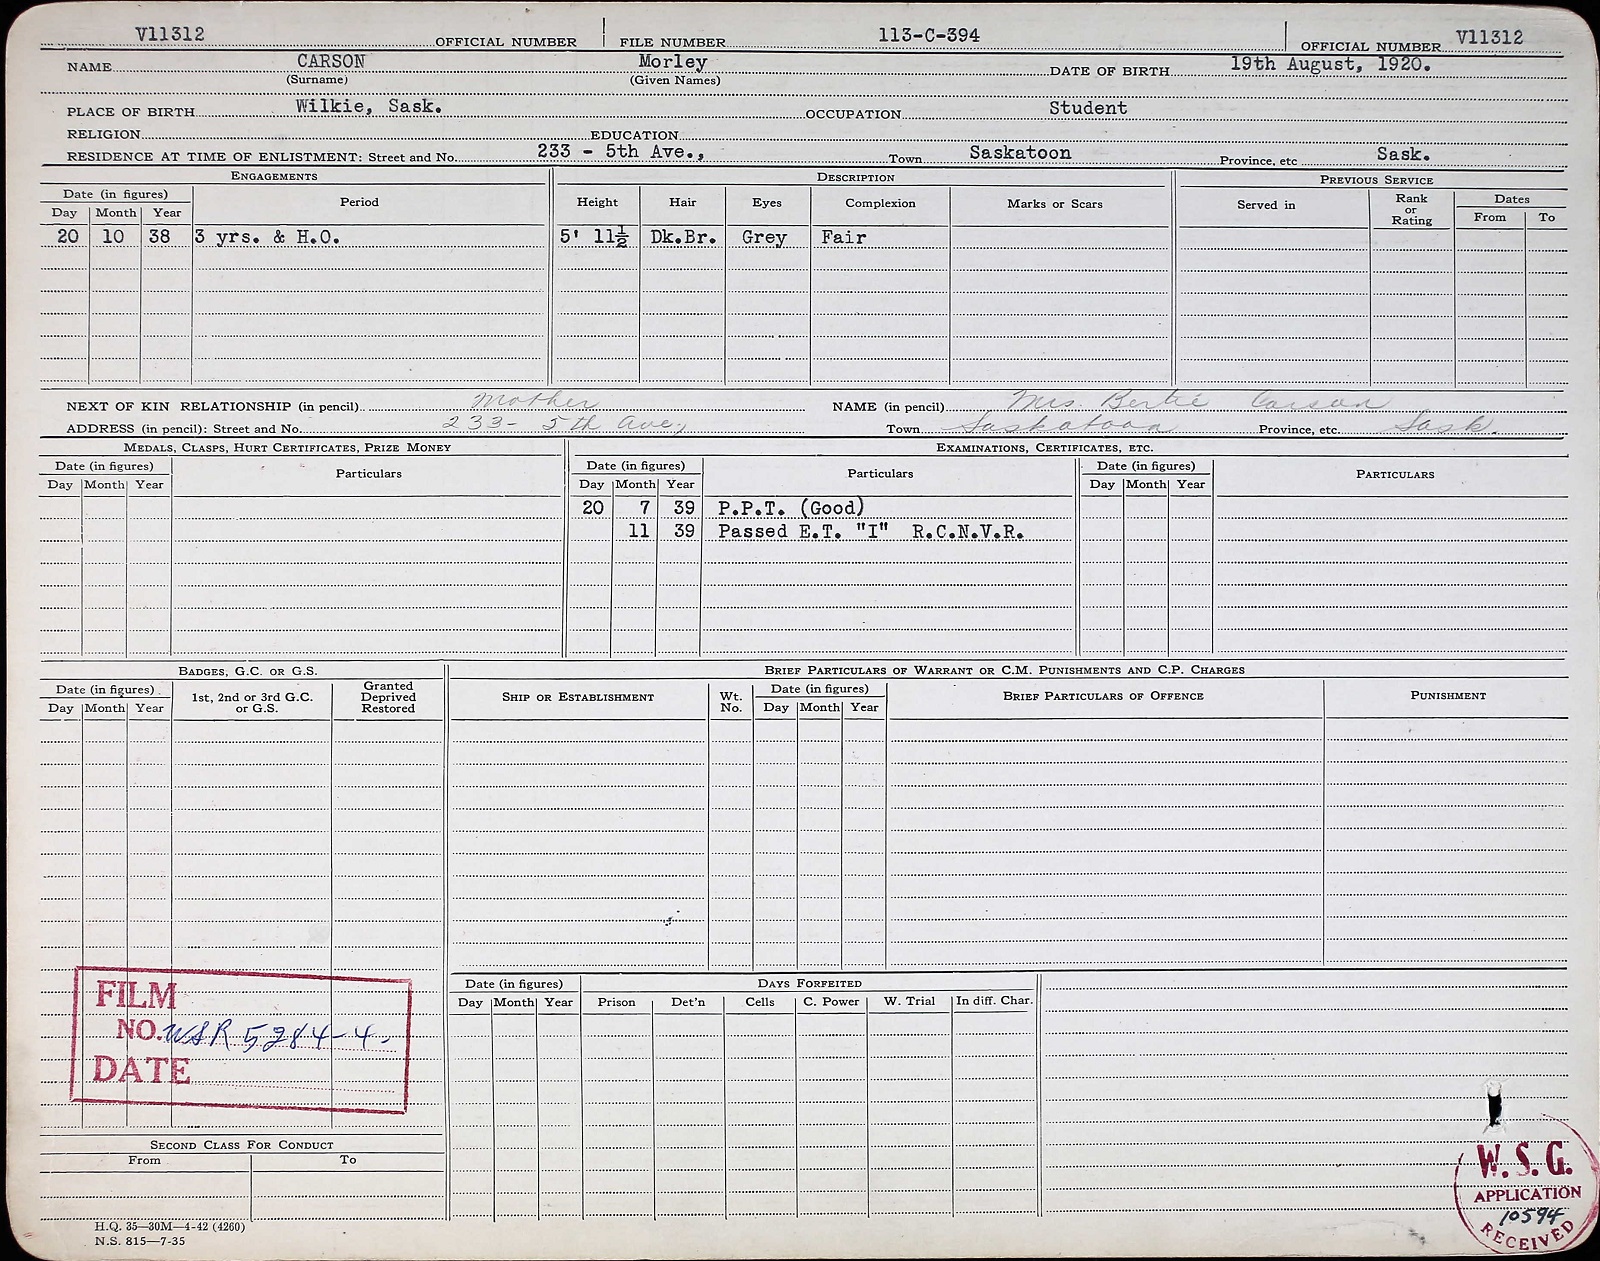 V11312 OFFICIAL NUMBER FILE NUMBER 113-C-394 OFFICIAL NUMBER V11312
NAME CARSON Morley DATE OF BIRTH 19th August, 1920.
(Surname) (Given Names)
PLACE OF BIRTH Wilkie, Sask. OCCUPATION Student
RELIGION EDUCATION
RESIDENCE AT TIME OF ENLISTMENT: Street and No. 233 - 5th Ave., Town Saskatoon Province, etc Sask.
ENGAGEMENTS DESCRIPTION PREVIOUS SERVICE
Date (in figures) Period Height Hair Eyes Complexion Marks or Scars Served in Rank or Rating Dates
Day Month Year From To
20 10 38 3 yrs. & H.O. 5' 11½ Dk.Br. Grey Fair
NEXT OF KIN RELATIONSHIP (in pencil) Mother NAME (in pencil) Mrs. Bertie Carson
ADDRESS (in pencil): Street and No. 233- 5th Ave, Town Saskatoon Province, etc. Sask.
MEDALS, CLASPS, HURT CERTIFICATES, PRIZE MONEY EXAMINATIONS, CERTIFICATES, ETC.
Date (in figures) Particulars Date (in figures) Particulars Date (in figures) PARTICULARS
Day Month Year Day Month Year Day Month Year
20 7 39 P.P.T. (Good)
11 39 Passed E.T. "I" R.C.N.V.R.
BADGES, G.C. OR G.S. BRIEF PARTICULARS OF WARRANT OR C.M. PUNISHMENTS AND C.P. CHARGES
Date (in figures) 1st, 2nd or 3rd G.C. or G.S. Granted Deprived Restored SHIP OR ESTABLISHMENT Wt. No. Date (in figures) BRIEF PARTICULARS OF OFFENCE PUNISHMENT
Day Month Year Day Month Year
Date (in figures) DAYS FORFEITED
Day Month Year Prison Det'n Cells C. Power W. Trial In diff. Char.
FILM
NO. WSR 5284-4.
DATE
SECOND CLASS FOR CONDUCT
From To
W.S.G.
APPLICATION
10594
RECEIVED
H.Q. 35—30M—4-42 (4260)
N.S. 815—7-35